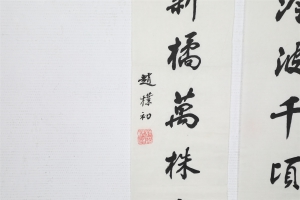 冷波千頃
新橘萬株
趙樸初